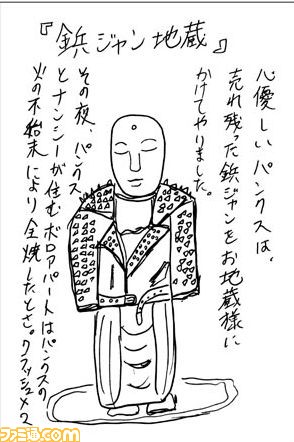 『鋲ジャン地蔵』
心優しいパンクスは、
売れ残った鋲ジャンをお地蔵様に
かけてやりました。
その夜、パンクス
とナンシーが住むボロアパートはパンクスの
火の不始末により全焼したとさ。
ファミ通.com